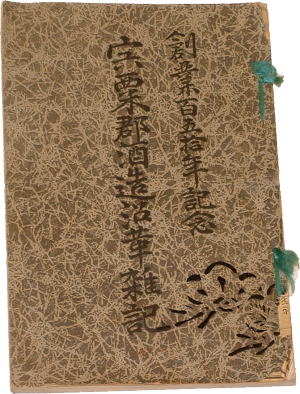 創業百五拾年記念
宍粟郡酒造沿革雑記